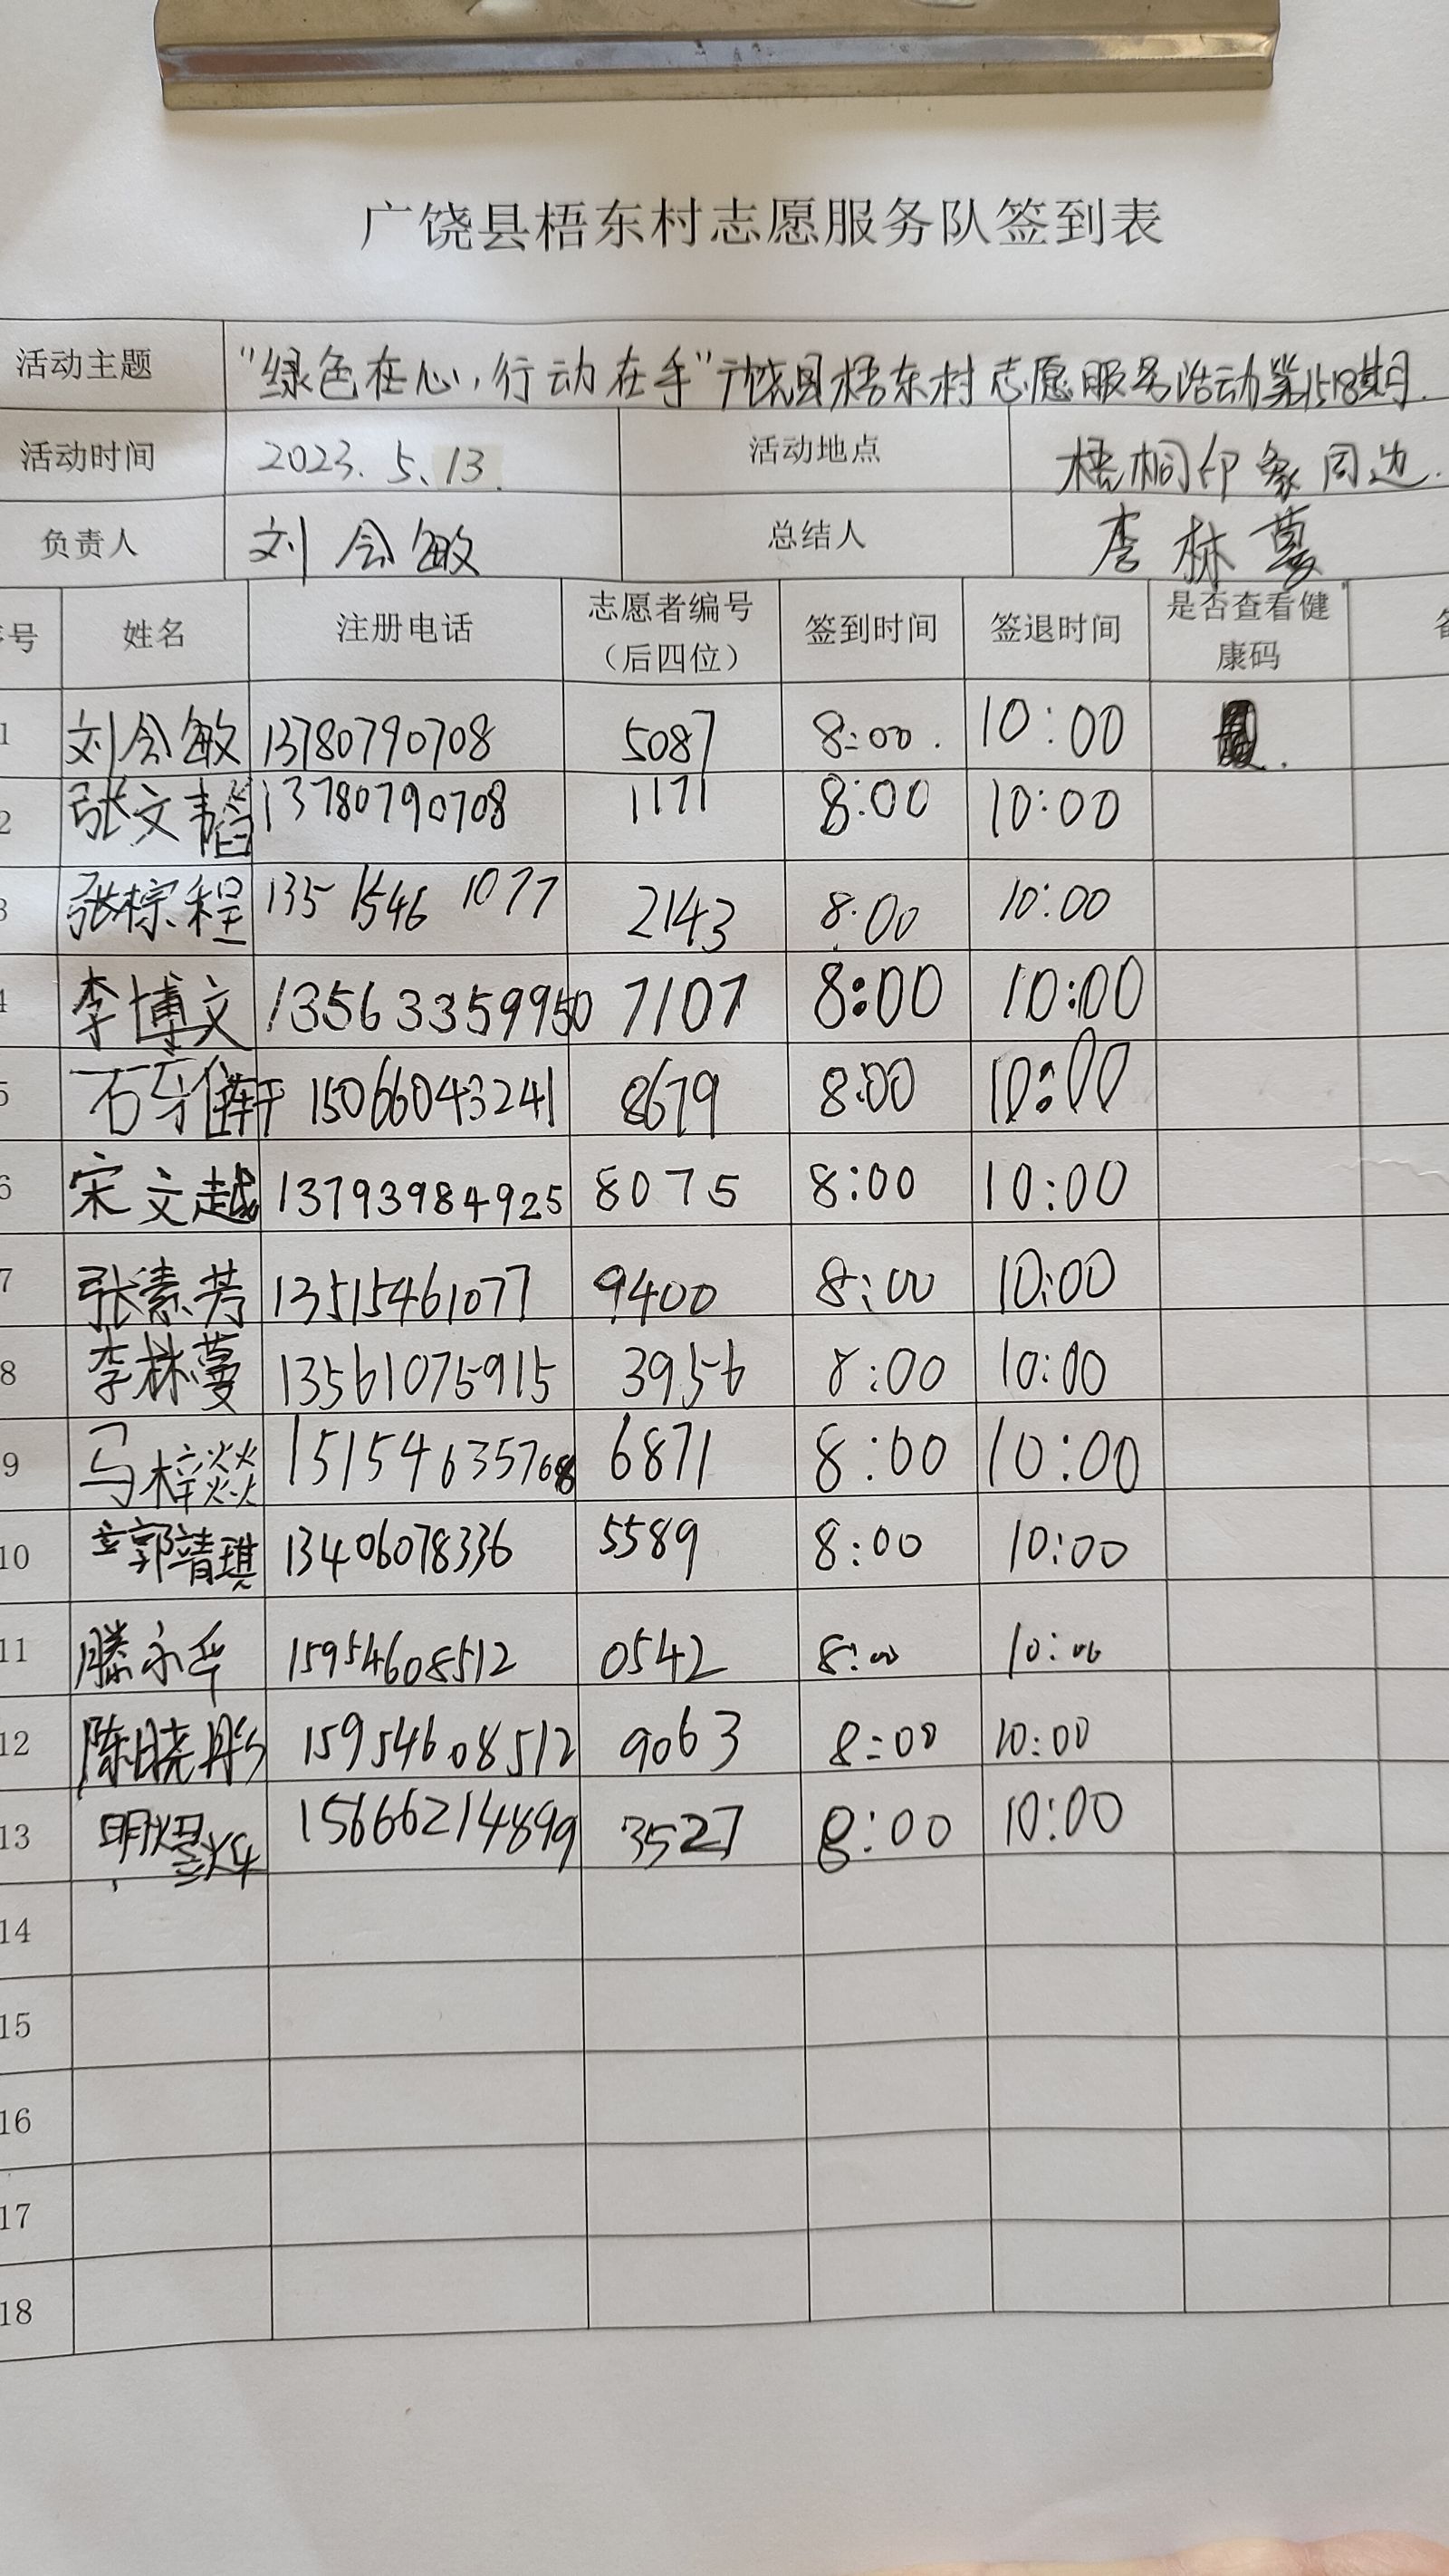 广饶县梧东村志愿服务队签到表
活动主题 "绿色在心,行动在手"广饶县梧东村志愿服务活动第1518期.
活动时间 2023.5.13. 活动地点 梧桐印象周边.
负责人 刘会敏 总结人 李林蔓
序号 姓名 注册电话 志愿者编号（后四位） 签到时间 签退时间 是否查看健康码 备
1 刘会敏 13780790708 5087 8:00. 10:00
2 张文韬 13780790708 1171 8:00 10:00
3 张棕程 135 1546 1077 2143 8:00 10:00
4 李博文 13563359950 7107 8:00 10:00
5 石 轩 15066043241 8679 8:00 10:00
6 宋文越 13793984925 8075 8:00 10:00
7 张素芳 13515461077 9400 8:00 10:00
8 李林蔓 13561075915 3956 8:00 10:00
9 马梓燚 15154635768 6871 8:00 10:00
10 郭靖琪 13406078336 5589 8:00 10:00
11 滕永华 15954608512 0542 8:00 10:00
12 陈晓彤 15954608512 9063 8:00 10:00
13 明煜烨 15666214899 3527 8:00 10:00
14
15
16
17
18